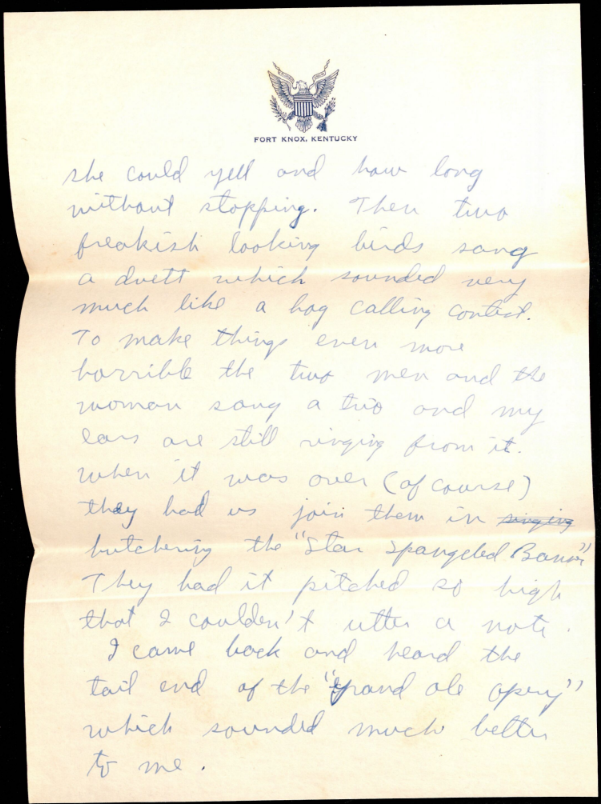 FORT KNOX, KENTUCKY
she could yell and how long
without stopping. Then two
freakish looking birds sang
a duett which sounded very
much like a hog calling contest.
To make things even more
horrible the two men and the
woman sang a trio and my
ears are still ringing from it.
When it was over (of course)
they had us join them in singing
butchering the "Star Spangeled Baner"
They had it pitched so high
that I couldn't utter a note.
I came back and heard the
tail end of the "grand ole opery"
which sounded much better
to me.